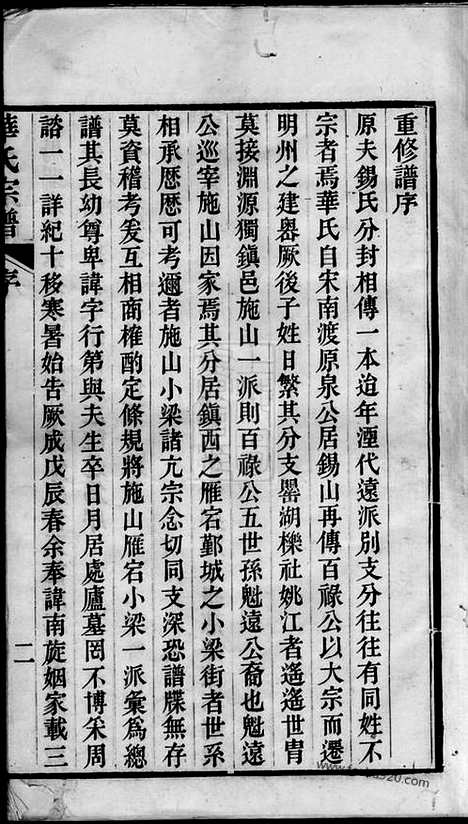 重修譜序
原夫錫氏分封相傳一本迨年湮代遠派别支分往往有同姓不
宗者焉華氏自宋南渡原泉公居錫山再傳百祿公以大宗而遷
明州之建嶴厥後子姓日繁其分支罌湖櫟社姚江者遙遙世胄
莫接淵源獨鎮邑施山一派則百祿公五世孫魁遠公裔也魁遠
公巡宰施山因家焉其分居鎮西之雁宕鄞城之小梁街者世系
相承歷歷可考邇者施山小梁諸亢宗念切同支深恐譜牒無存
莫資稽考爰互相商榷酌定條規將施山雁宕小梁一派彙為總
譜其長幼尊卑諱字行第與夫生卒日月居處廬墓罔不博采周
諮一一詳紀十移寒暑始告厥成戊辰春余奉諱南旋姻家載三
華氏宗譜
序
二